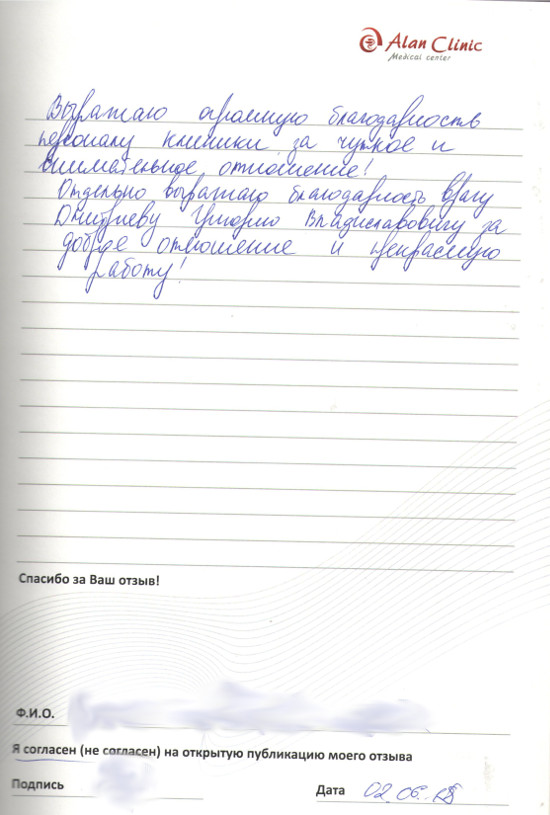 Alan Clinic
Medical center
Выражаю огромную благодарность
персоналу клиники за чуткое и
внимательное отношение!
Отдельно выражаю благодарность врачу
Дмитриеву Владиславовичу за
доброе отношение и прекрасную
работу!
Спасибо за Ваш отзыв!
Ф.И.О.
Я согласен (не согласен) на открытую публикацию моего отзыва
Подпись
Дата 02.06.18